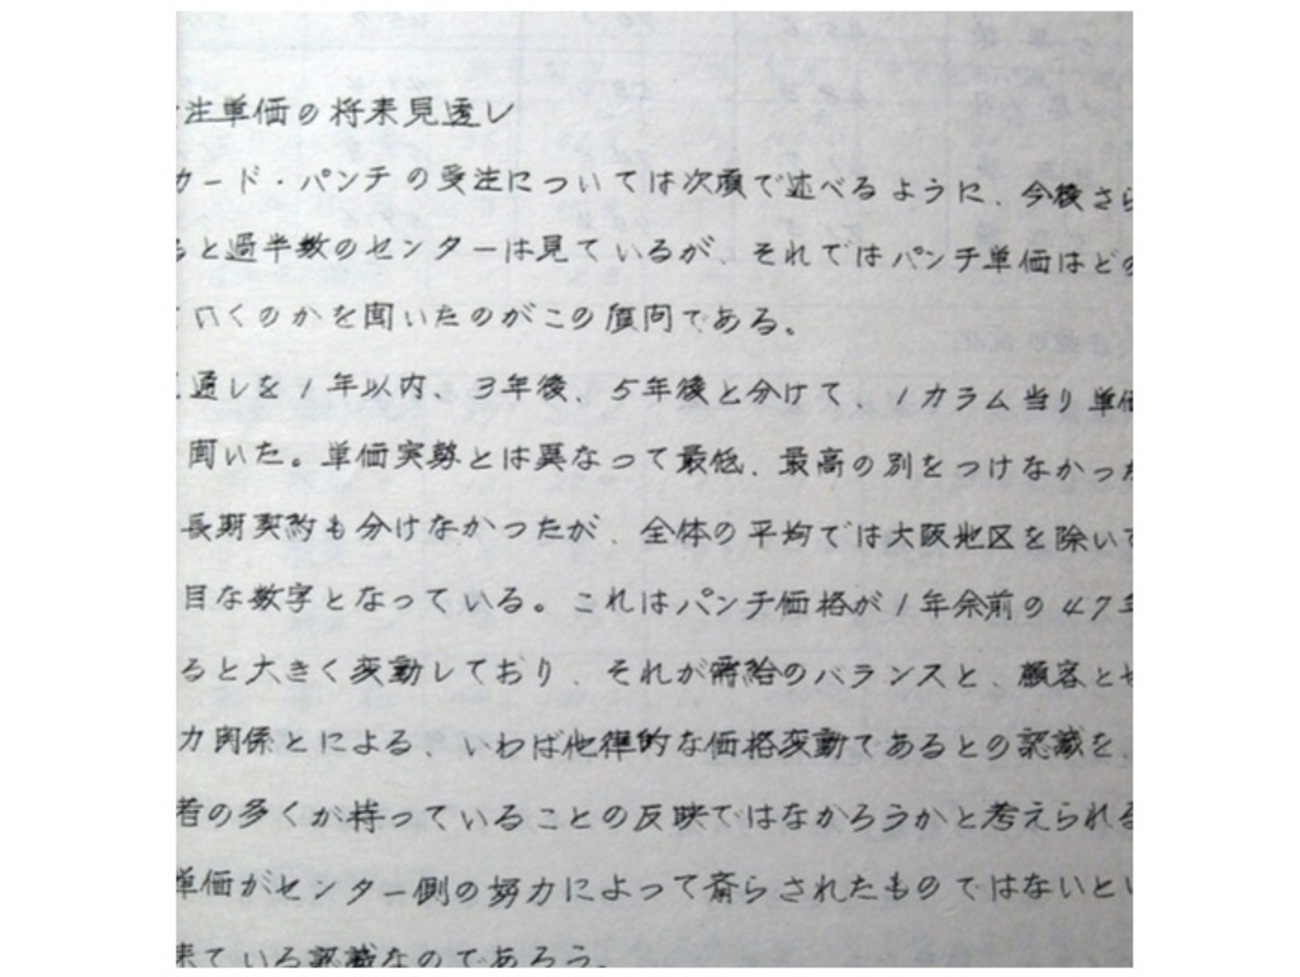 注単価の将来見透し
カード・パンチの受注については次項で述べるように、今後さら
ると過半数のセンターは見ているが、それではパンチ単価はどの
て行くのかを聞いたのがこの質問である。
通しを1年以内、3年後、5年後と分けて、1カラム当り単価
聞いた。単価実勢とは異なって最低、最高の別をつけなかった
長期契約も分けなかったが、全体の平均では大阪地区を除いて
目な数字となっている。これはパンチ価格が1年余前の47年
ると大きく変動しており、それが需給のバランスと、顧客とセ
力関係とによる、いわば他律的な価格変動であるとの認識を、
者の多くが持っていることの反映ではなかろうかと考えられる
単価がセンター側の努力によって斎らされたものではないとい
来ている認識なのであろう。